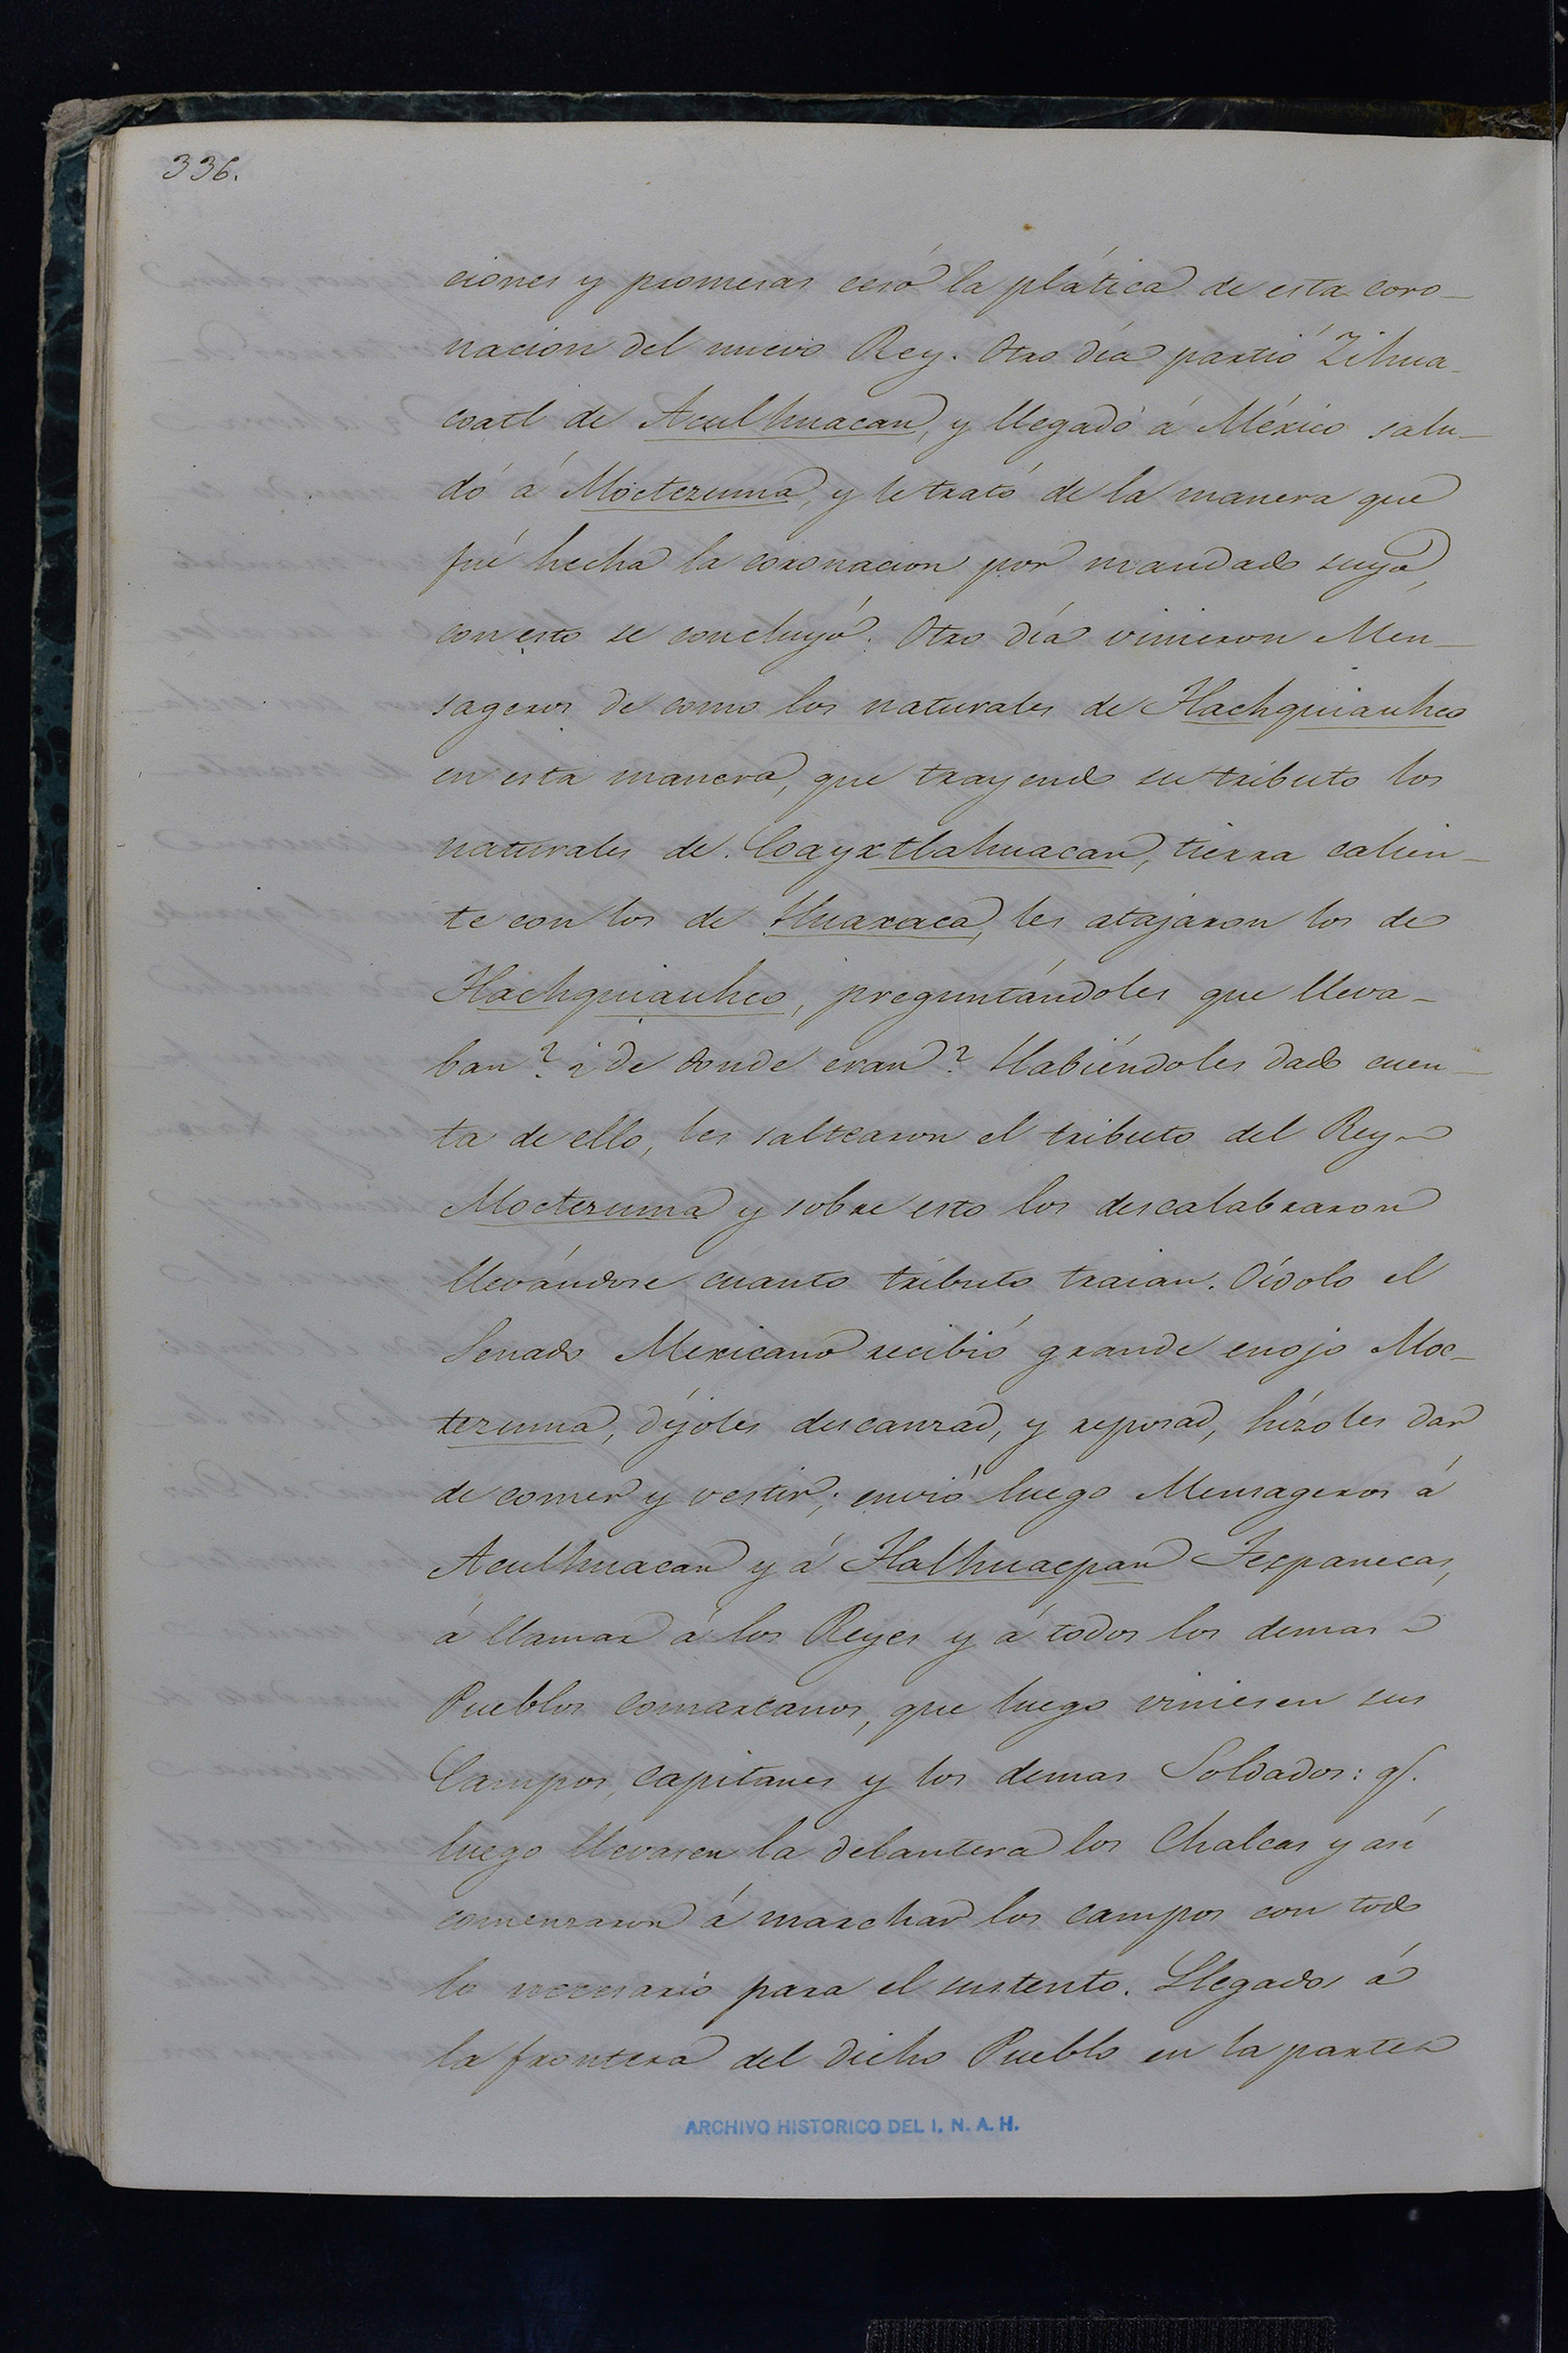 336.
ciones y promesas cesó la plática de esta coro-
nacion del nuevo Rey. Otro día partió Zihua-
coatl de Aculhuacan, y llegado á México salu-
dó á Moctezuma, y le trató de la manera que
fué hecha la coronacion por mandado suyo,
con esto se concluyó. Otro día vinieron Men-
sageros de como los naturales de Tlachquiauhco
en esta manera, que trayendo su tributo los
naturales de Coayxtlahuacan, tierra calien-
te con los de Huaxaca, les atajaron los de
Tlachquiauhco, preguntándoles que lleva-
ban? ¿de donde eran? Habiéndoles dado cuen-
ta de ello, les saltearon el tributo del Rey
Moctezuma y sobre esto los descalabraron
llevándose cuanto tributo traian. Oídolo el
Senado Mexicano recibió grande enojo Moc-
tezuma, díjoles descansad, y reposad, hízoles dar
de comer y vestir; envió luego Mensageros á
Aculhuacan y á Tlalhuacpan Tecpanecas,
á llamar á los Reyes y á todos los demas
Pueblos comarcanos, que luego viniesen sus
Campos, Capitanes y los demas Soldados: q.
luego llevasen la delantera los Chalcas y así
comenzaron á marchar los campos con todo
lo necesario para el sustento. Llegados á
la frontera del dicho Pueblo en la parte
ARCHIVO HISTORICO DEL I. N. A. H.